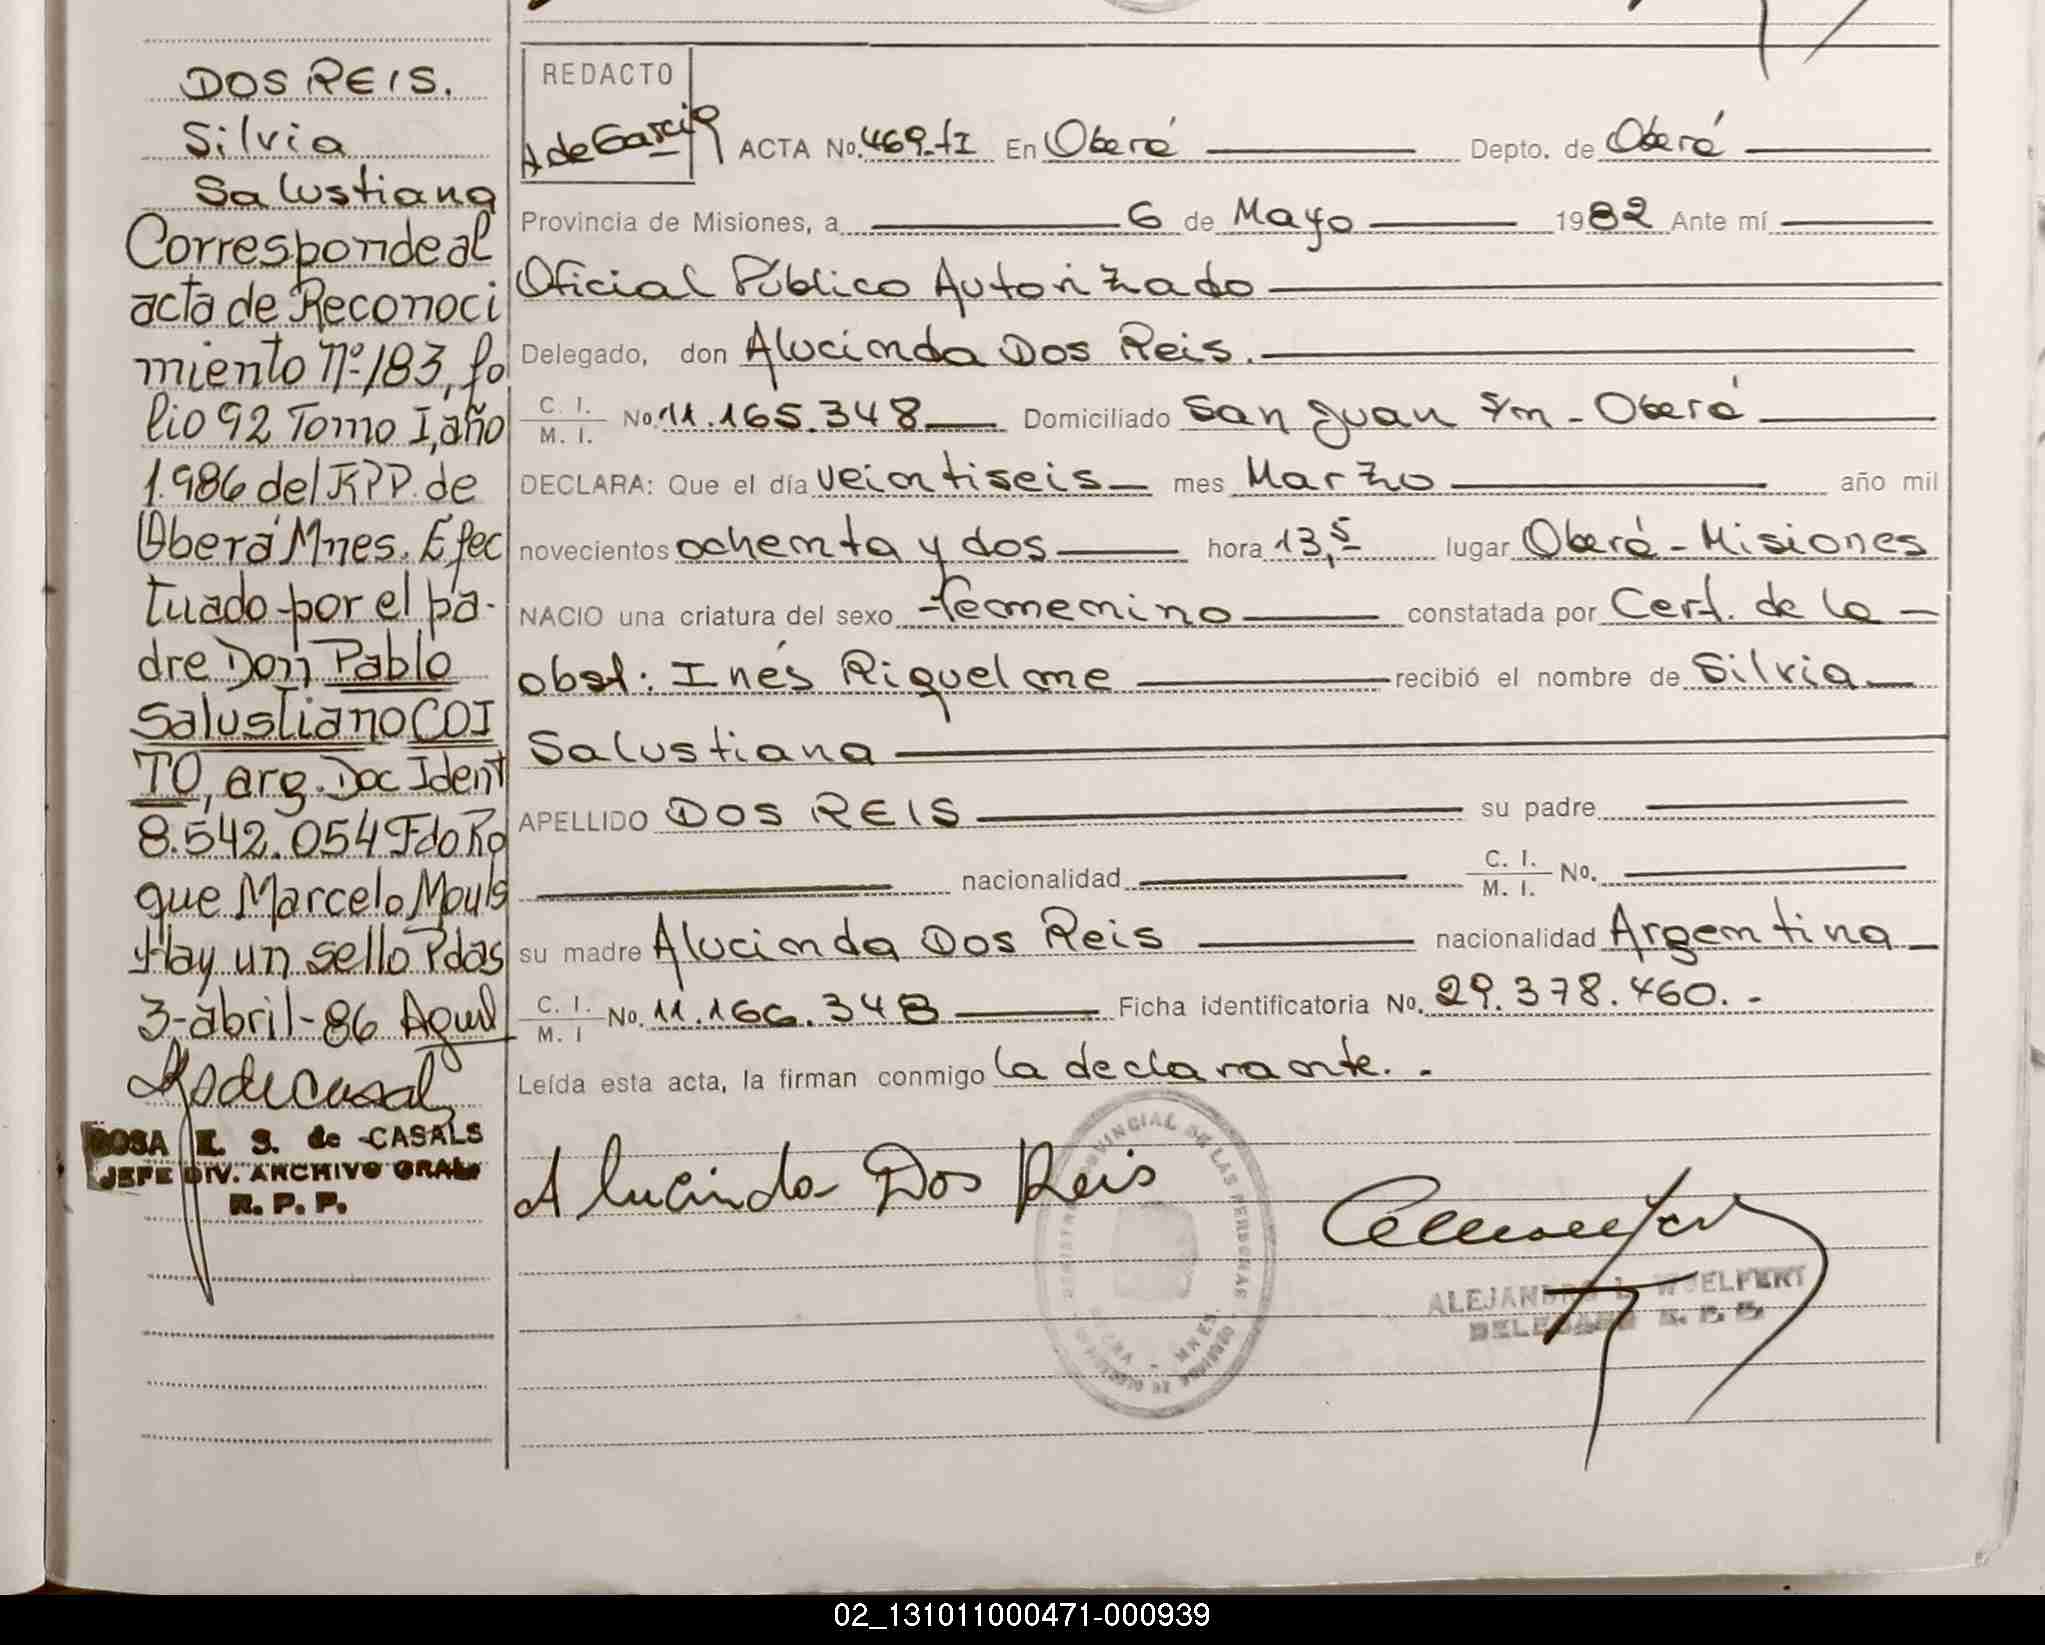 DOS REIS.
Silvia
Salustiana
Corresponde al
acta de Reconoci
miento Nº 183, fo
lio 92 Tomo I, año
1.986 del RPP. de
Oberá Mnes. Efec
tuado por el pa-
dre Don Pablo
Salustiano COI
TO, arg. Doc Ident
8.542.054 Fdo Ro
que Marcelo Mouls
Hay un sello Pdas
3-abril-86
ROSA E. S. de CASALS
JEFE DIV. ARCHIVO GRAL.
R. P. P.
REDACTO
A de Garcia
ACTA No. 469-tI En Oberá Depto. de Oberá
Provincia de Misiones, a 6 de Mayo 1982 Ante mí
Oficial Público Autorizado
Delegado, don Alucinda Dos Reis.
C. I. / M. I. No. 11.165.348 Domiciliado San Juan s/n - Oberá
DECLARA: Que el día veintiseis mes Marzo año mil
novecientos ochenta y dos hora 13,5 lugar Oberá - Misiones
NACIO una criatura del sexo femenino constatada por Cert. de la
obst: Inés Riquelme recibió el nombre de Silvia
Salustiana
APELLIDO DOS REIS su padre
nacionalidad C. I. / M. I. No.
su madre Alucinda Dos Reis nacionalidad Argentina
C. I. / M. I No. 11.166.348 Ficha identificatoria No. 29.378.460.-
Leída esta acta, la firman conmigo la declarante.-
Alucinda Dos Reis
PROVINCIAL DE LAS PERSONAS
ALEJANDRO L. WUELFERT
DELEGADO
02_131011000471-000939